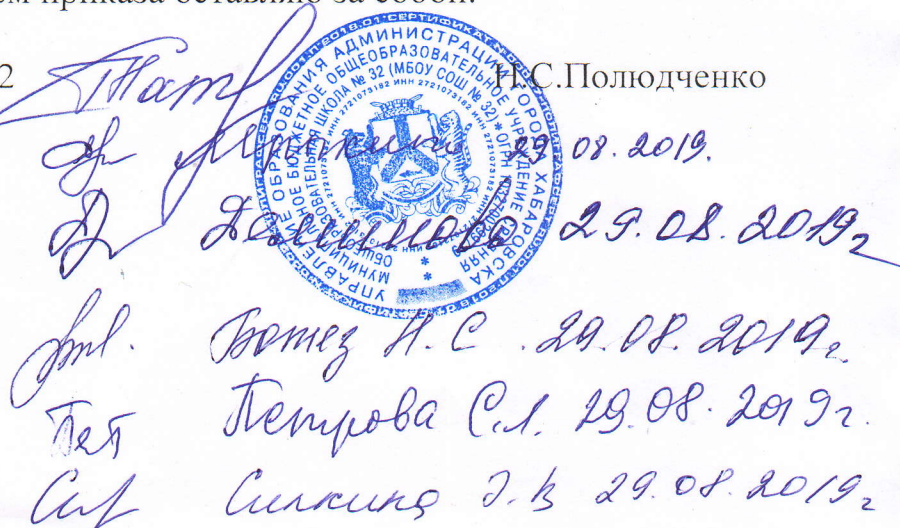 приказа оставляю за собой.
2 Н.С.Полюдченко
УПРАВЛЕНИЕ ОБРАЗОВАНИЯ АДМИНИСТРАЦИИ ГОРОДА ХАБАРОВСКА
МУНИЦИПАЛЬНОЕ БЮДЖЕТНОЕ ОБЩЕОБРАЗОВАТЕЛЬНОЕ УЧРЕЖДЕНИЕ
ШКОЛА № 32 (МБОУ СОШ № 32)
ИНН 2721073182
29 08. 2019.
29.08.2019г
Ботез Н.С. 29.08.2019г.
Пет Петрова С.Л. 29.08.2019г.
Силкина 29.08.2019г